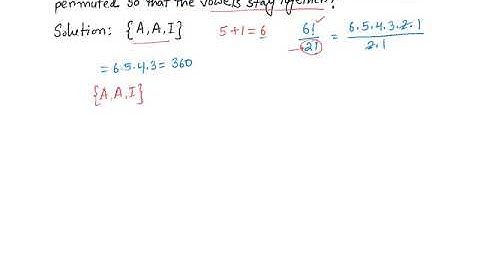 permuted so that the vowels stay together?
Solution: {A,A,I} 5+1=6 6!/2! = 6.5.4.3.2.1/2.1
= 6.5.4.3 = 360
{A,A,I}